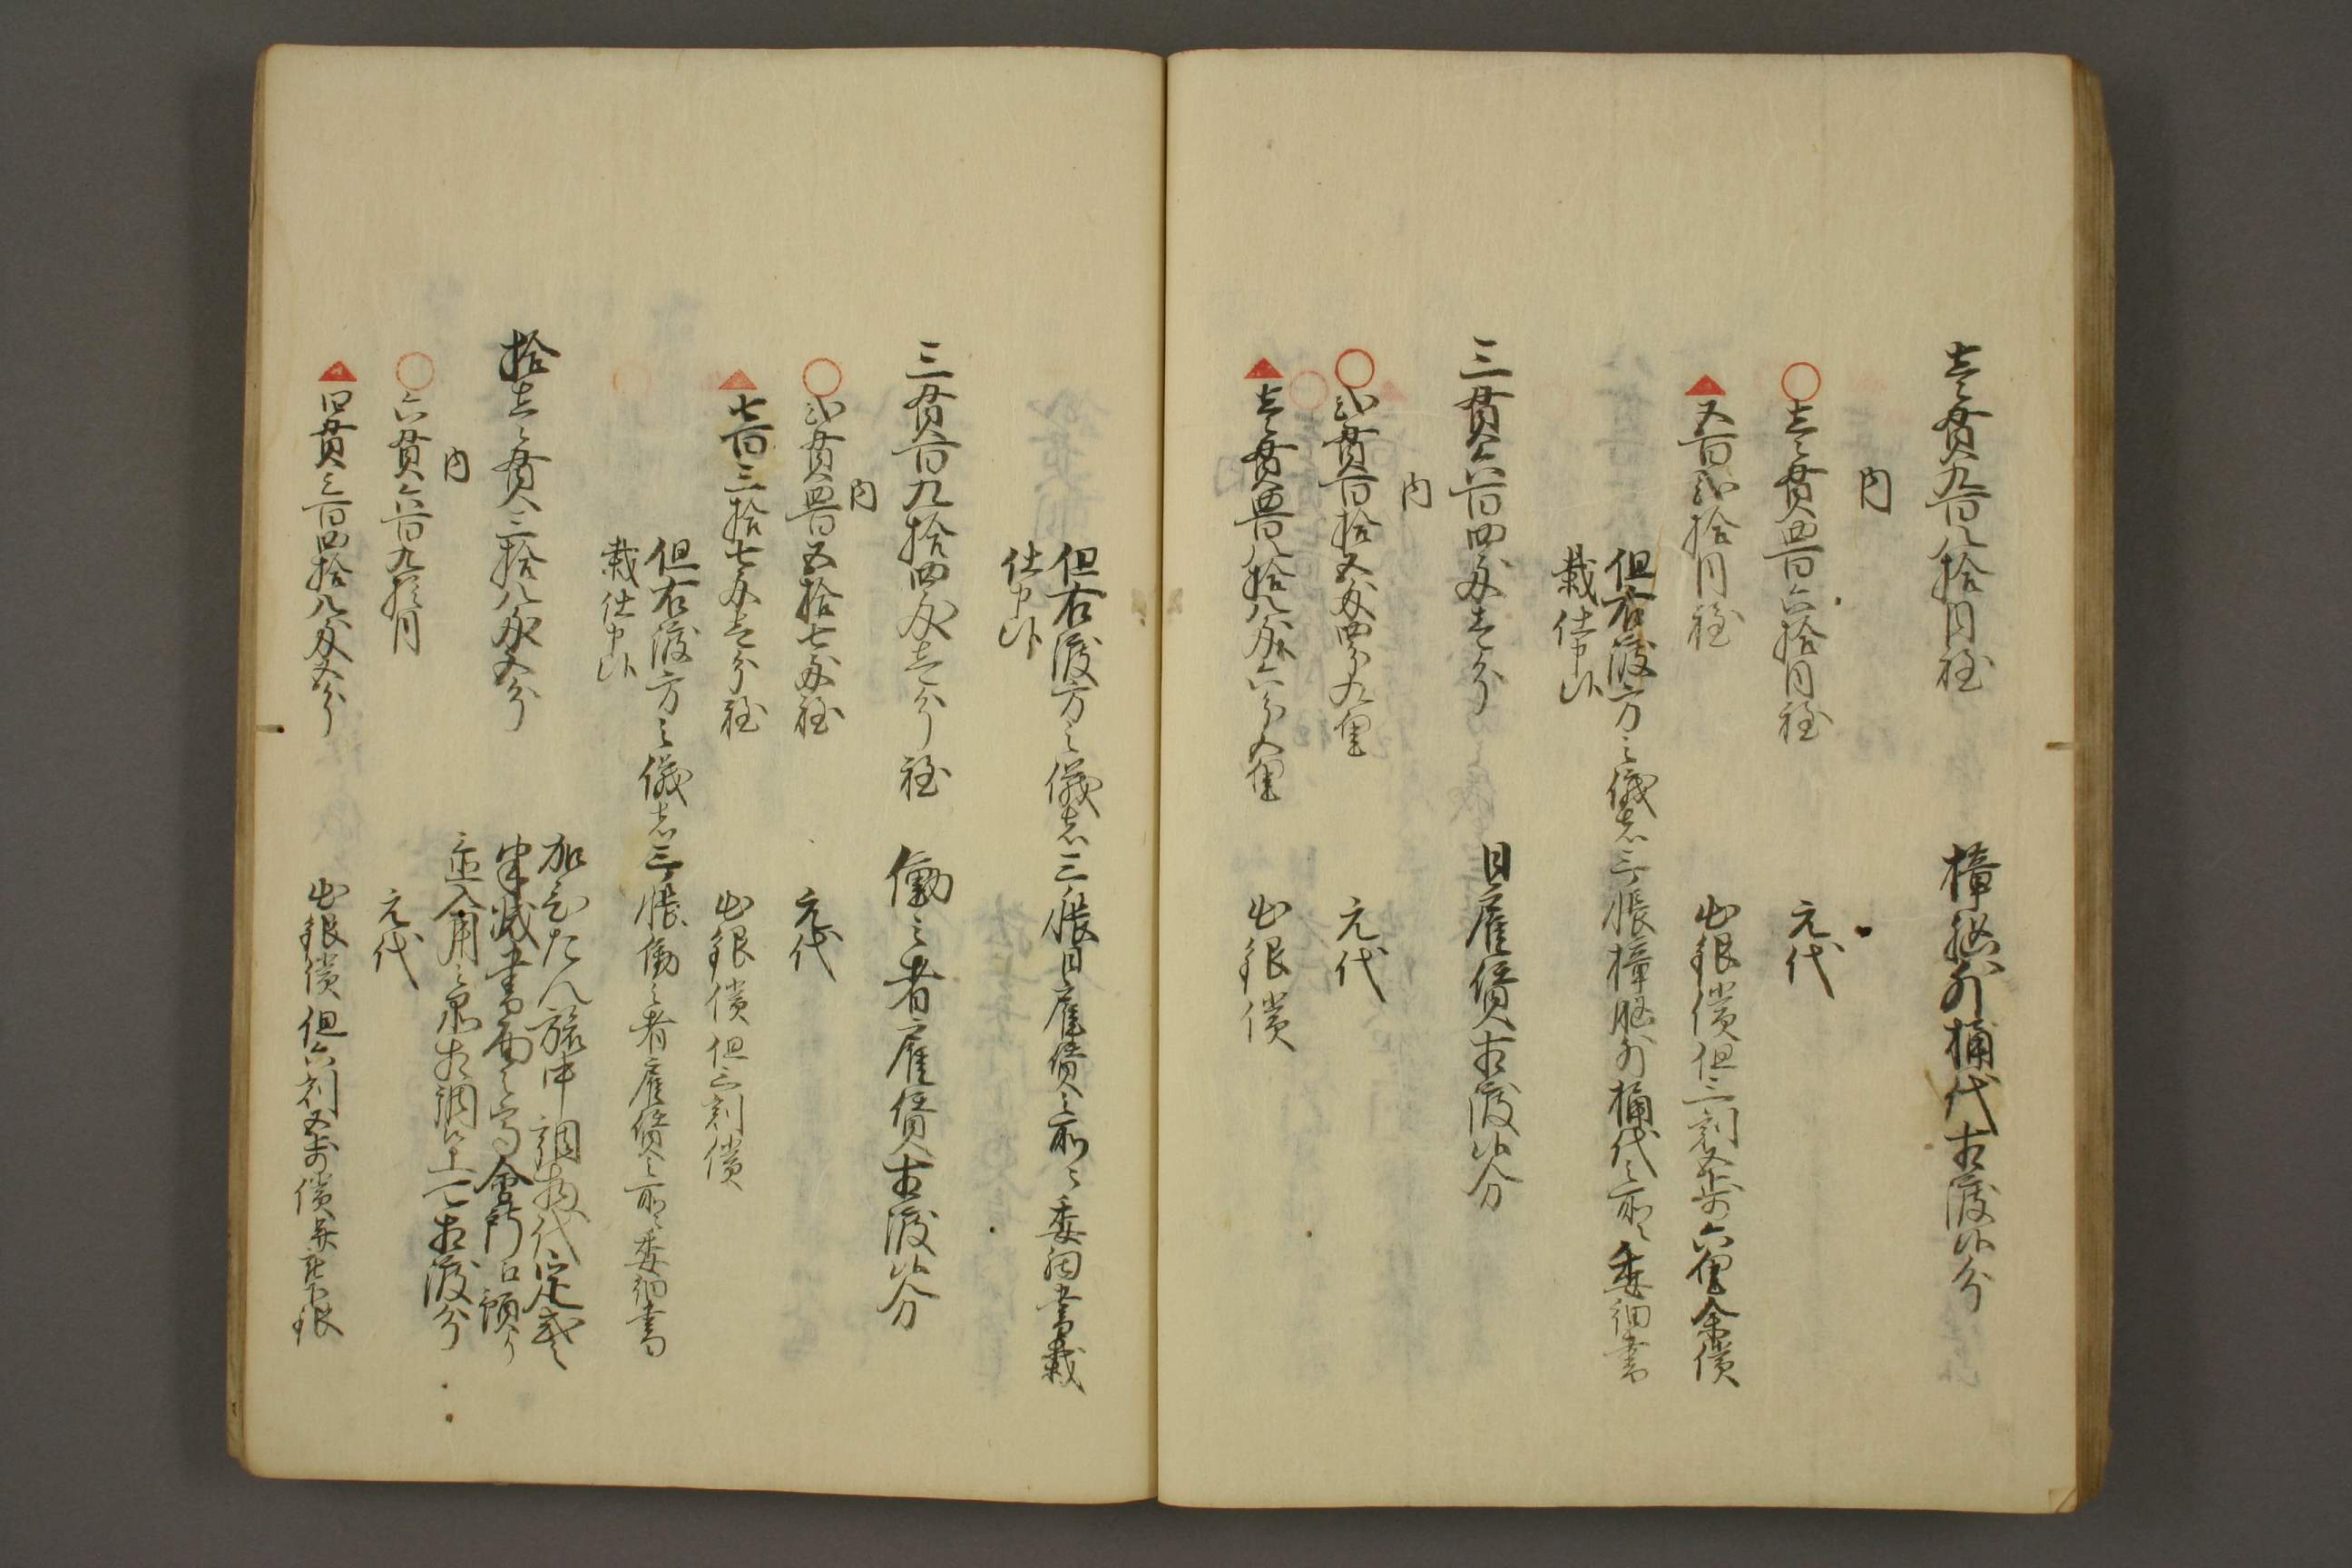 壱貫九百八拾目程　樟脳外桶代相渡候分
内
壱貫四百六拾目程　元代
五百弐拾目程　出銀償但三割五歩六厘余償
但右渡方之儀者三番帳樟脳外桶代之所ニ委細書
載仕申候
三貫六百四匁壱分　日雇賃相渡候分
内
弐貫百拾五匁四分九厘　元代
壱貫四百八拾八匁六分八厘　出銀償
但右渡方之儀者三番帳日雇賃之所ニ委細書載
仕申候
三貫百九拾四匁壱分程　働之者雇賃相渡候分
内
弐貫四百五拾七匁程　元代
七百三拾七匁壱分程　出銀償但三割償
但右渡方之儀者三番帳働之者雇賃之所ニ委細書
載仕申候
拾壱貫三拾八匁五分　加ひたん旅中調物代定式之
半減書面之高会所口預り
並入用之系相調候上ニて相渡分
内
六貫六百九拾目　元代
四貫三百四拾八匁五分　出銀償但六割五歩償